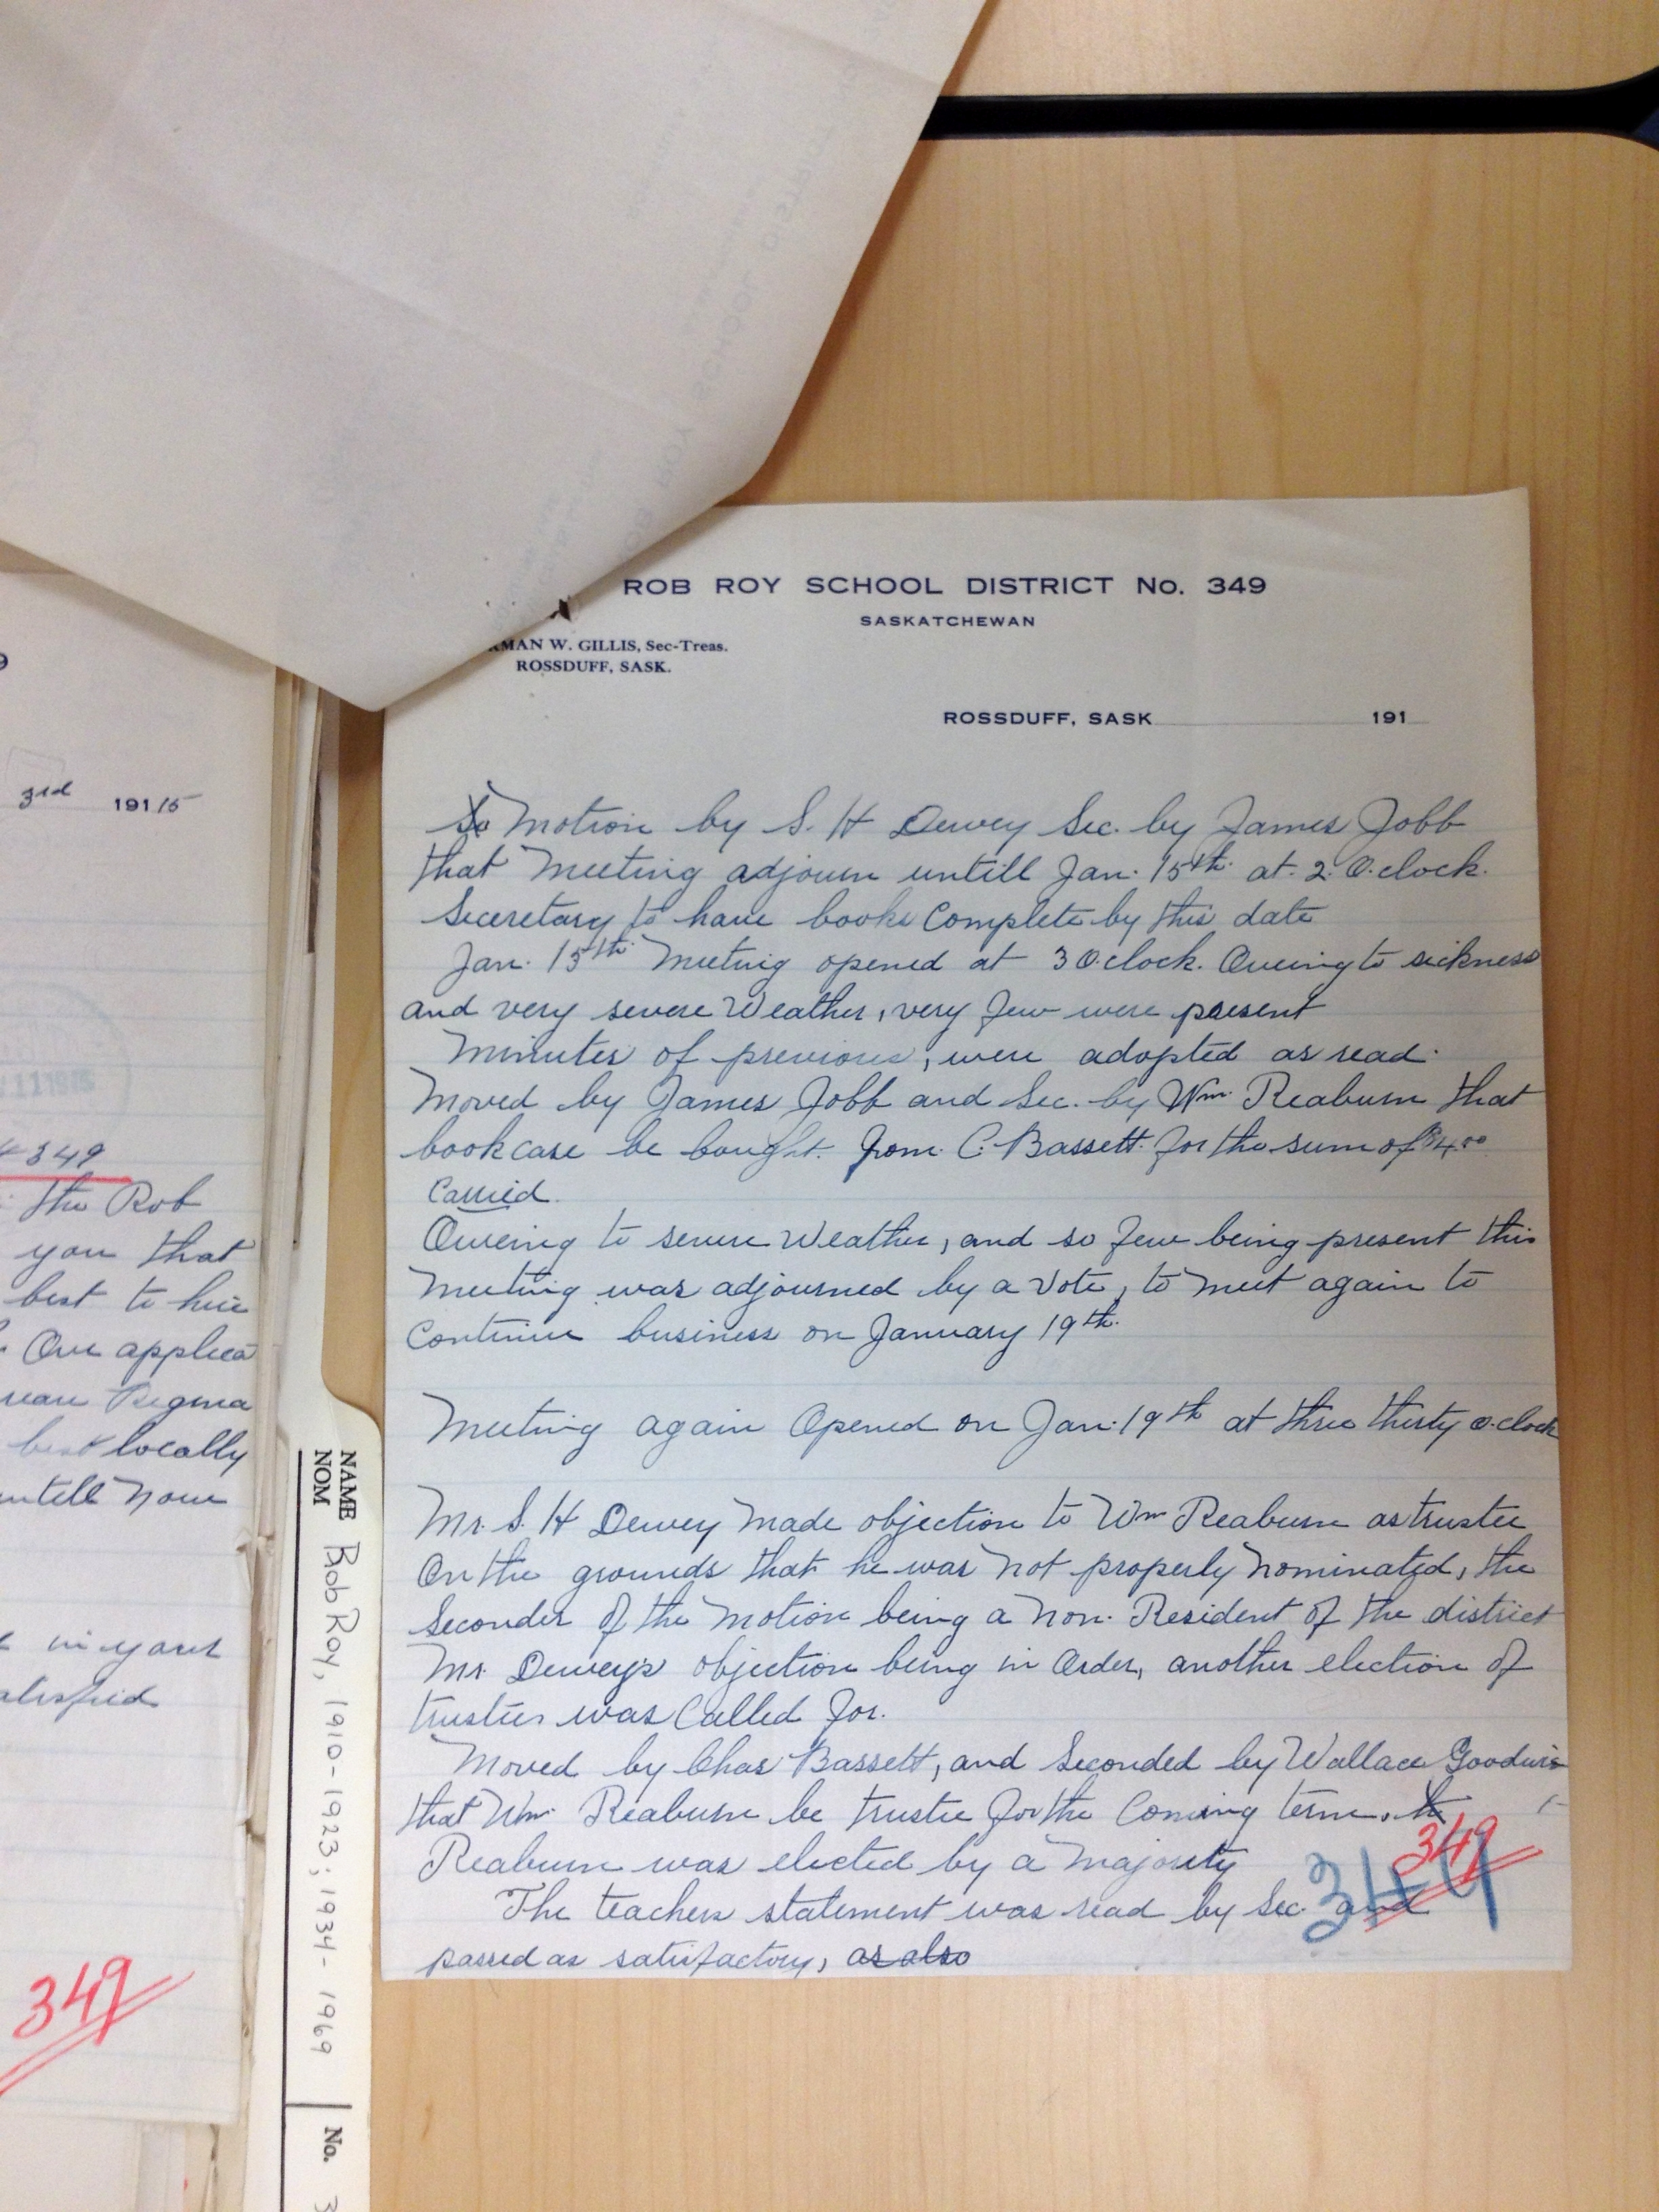 ROB ROY SCHOOL DISTRICT No. 349
SASKATCHEWAN
RMAN W. GILLIS, Sec-Treas.
ROSSDUFF, SASK.
ROSSDUFF, SASK 191
Motion by S. H Dewey Sec. by James Jobb
that Meeting adjourn untill Jan. 15th at. 2. O.clock.
Seceretary to have books Complete by this date
Jan. 15th Meeting opened at 3 O.clock. Oweing to sickness
and very severe Weather, very few were present
Minutes of previous, were adopted as read.
Moved by James Jobb and Sec. by Wm. Reaburn that
bookcase be bought. from. C. Bassett. for the sum of $4.00
Carried.
Oweing to severe Weather, and so few being present this
Meeting was adjourned by a Vote, to meet again to
Continue business on January 19th.
Meeting again Opened on Jan. 19th at three thirty o.clock
Mr. S. H Dewey Made objection to Wm Reaburn as trustee
On the grounds that he was not properly Nominated, the
Seconder of the Motion being a Non. Resident of the district
Mr. Dewey's objection being in Order, another election of
trustees was Called for.
Moved by Chas Bassett, and Seconded by Wallace Goodwin
that Wm. Reaburn be trustee for the Coming term.
Reaburn was elected by a Majority
349
349
The teachers statement was read by Sec. and
passed as satisfactory, as also
3rd 1915
349
the Rob
you that
best to hire
Our applica
near Regina
best locally
untill Now
in your
349
NAME
NOM
Rob Roy, 1910-1923; 1934-1969
No. 3